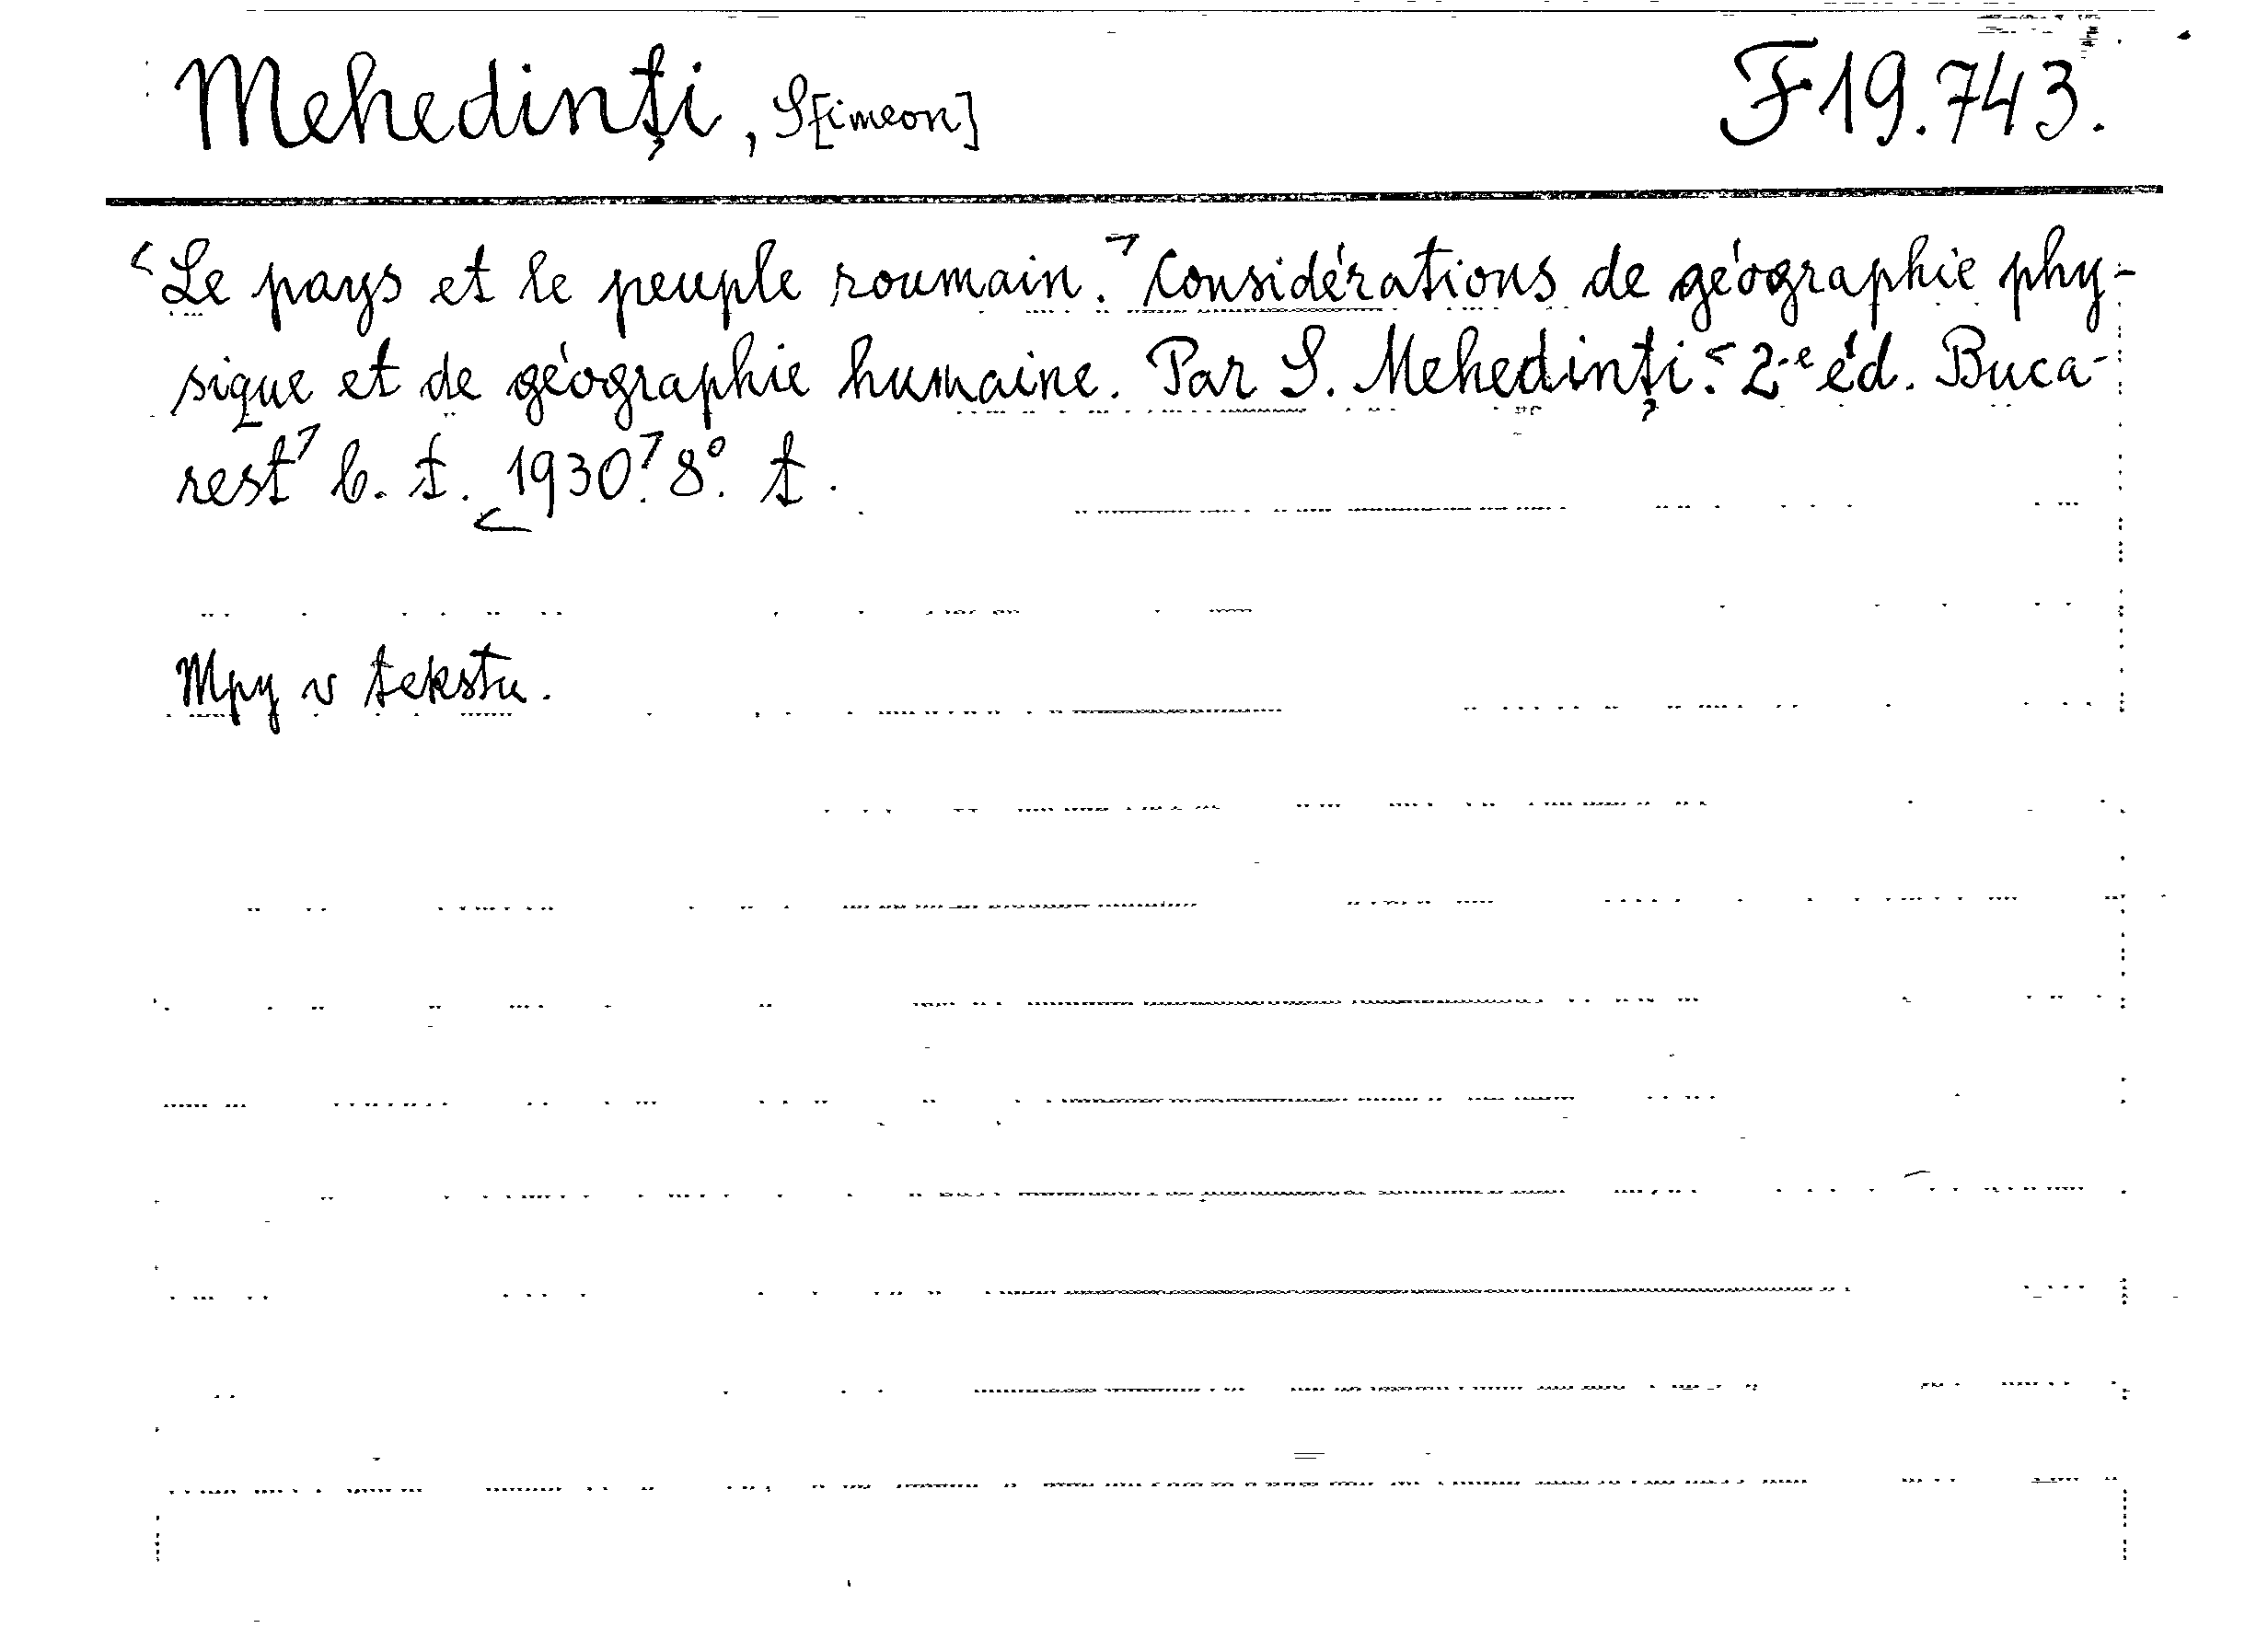 Mehedinți, S[imeon] F 19.743.
<Le pays et le peuple roumain.> Considérations de géographie phy-
sique et de géographie humaine. Par S. Mehedinți. <2-e éd. Buca-
rest> b. t. <1930>. 8°. t.
Mpy v tekstu.